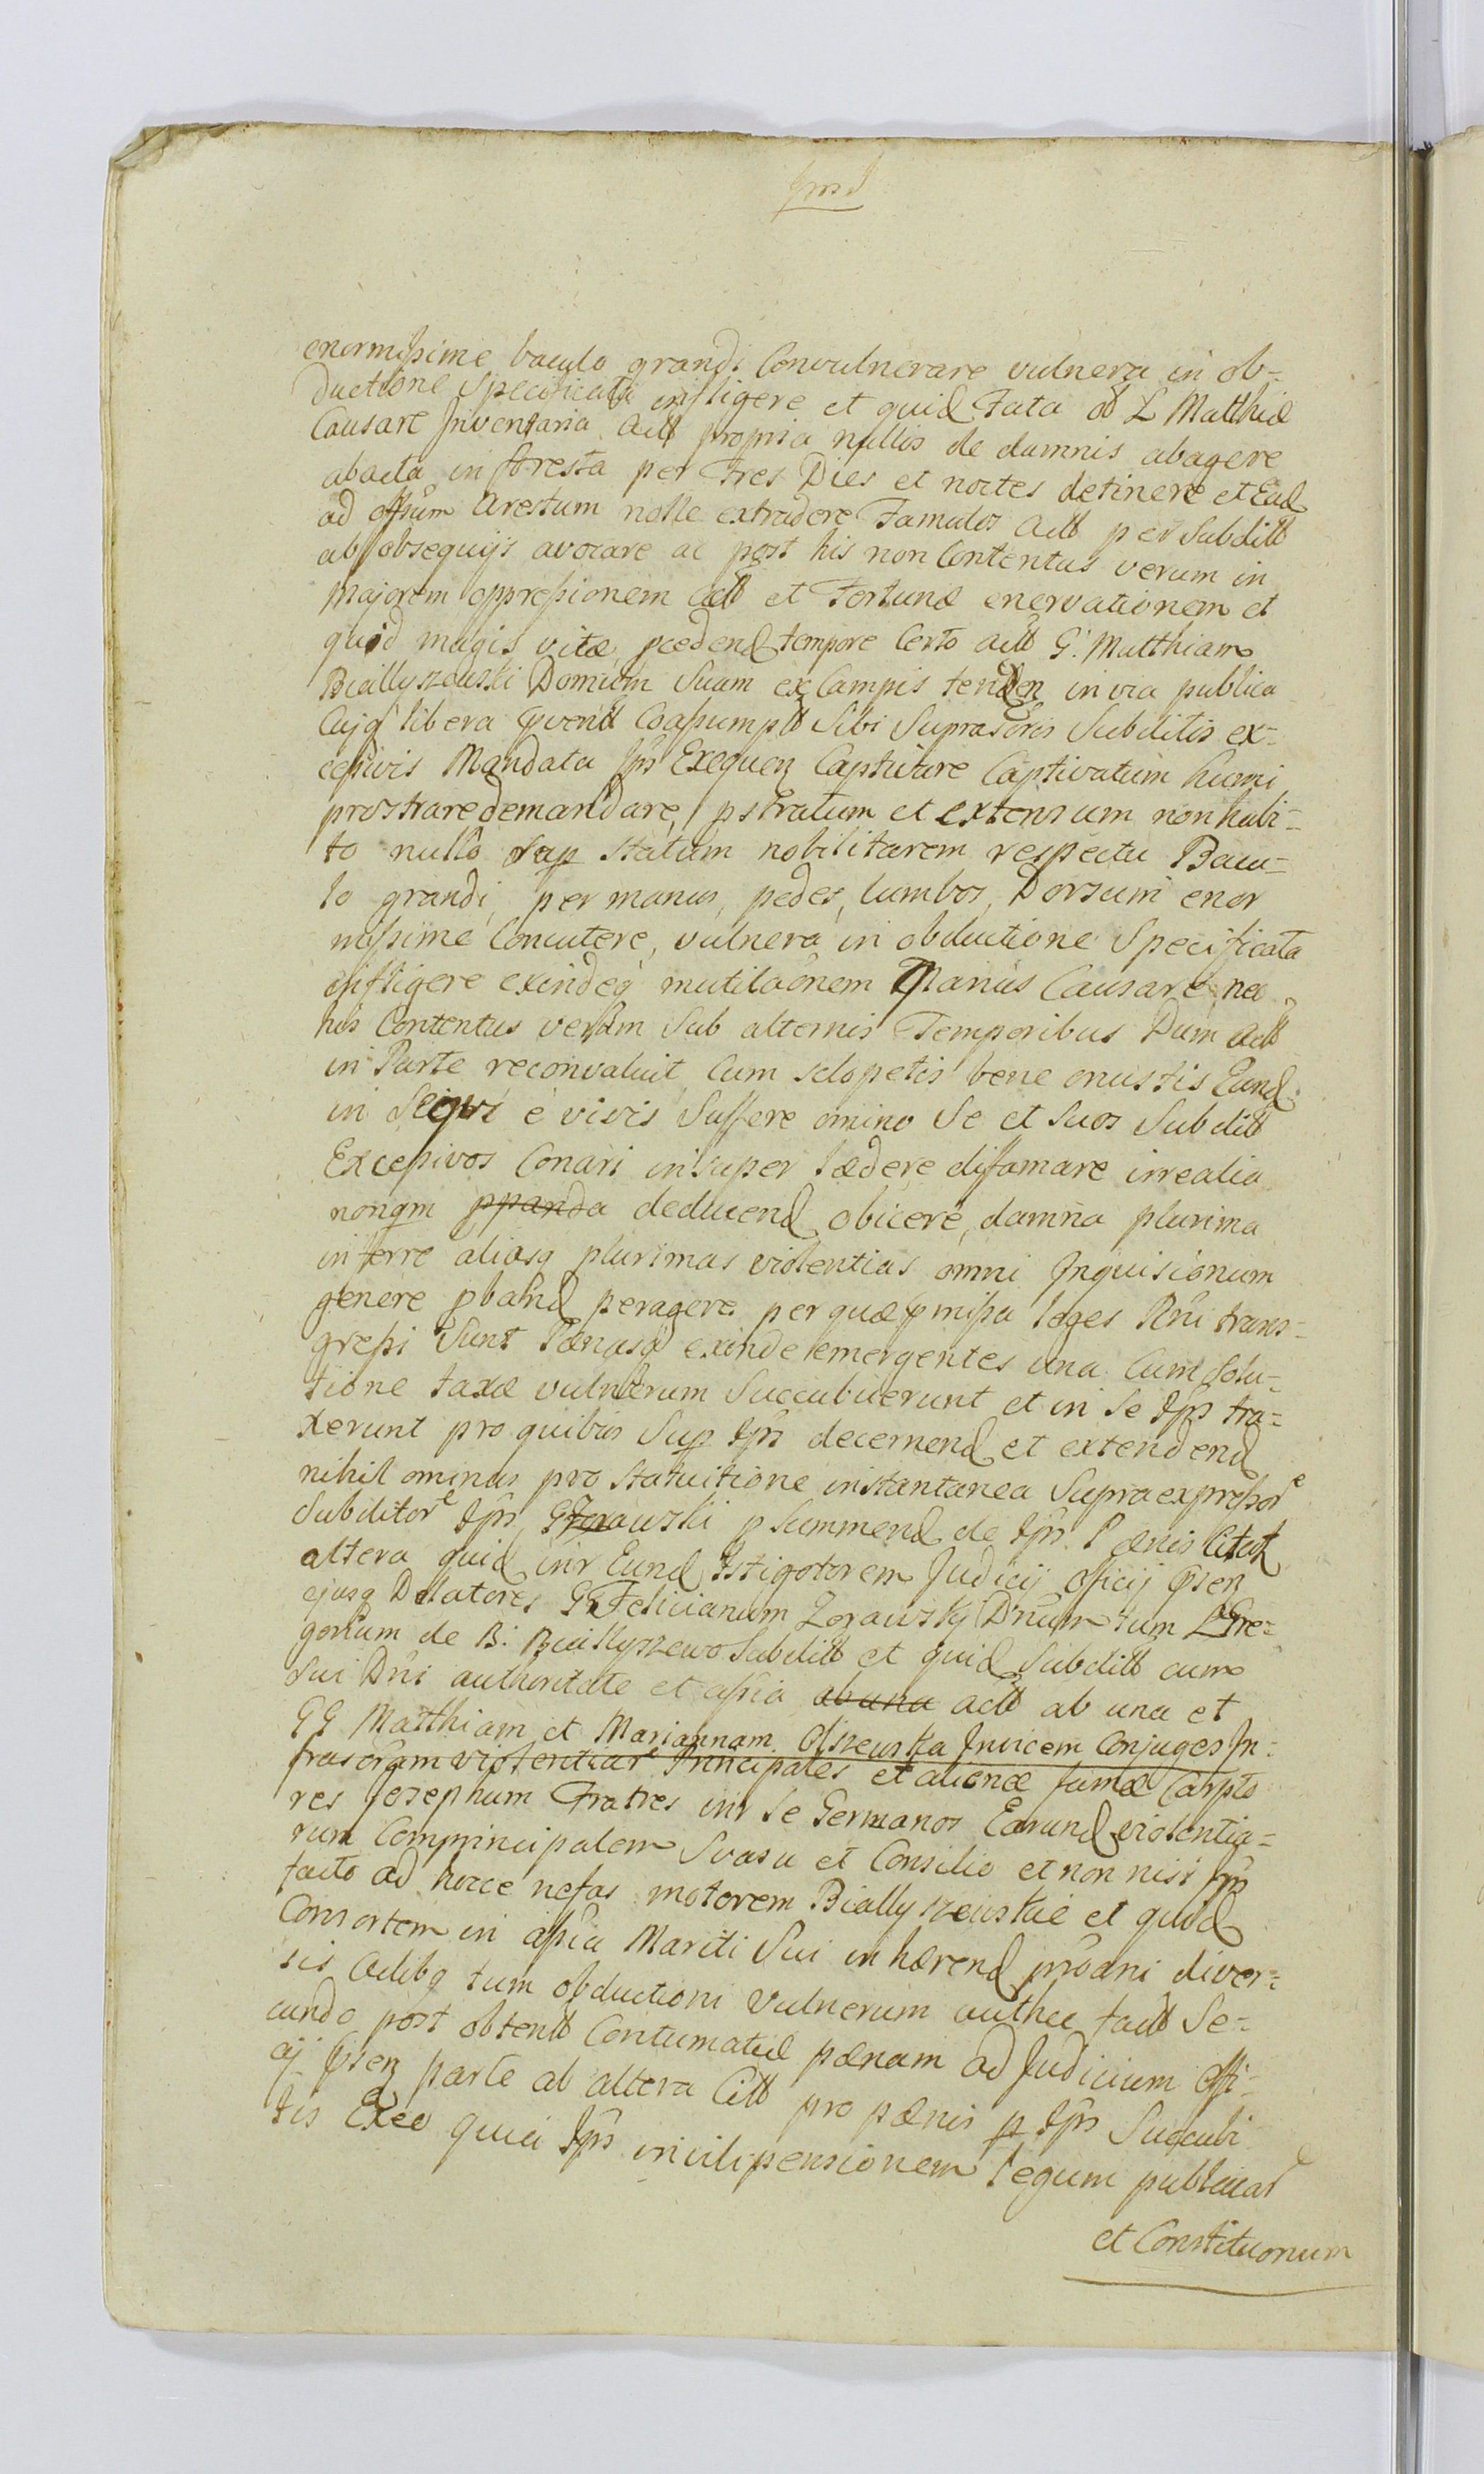 enormissime baculo grandi Convulnerare vulnera in ob-
ductione Specificata infligere et quid Fata ob L Matthiæ
Causare Inventaria Act propria nullis de damnis abagere
abacta in foresta per tres Dies et noctes detinere et Ead
ad offium Arestum nolle extradere Famulos Act per Subdit
ab obsequijs avocare ac post his non Contentus verum in
majorem oppressionem Act et Fortunæ enervationem et
quid magis vitæ, pcedend tempore Certo Act G. Matthiam
Biallyszewski Domum Suam ex Campis tenden in via publica
Cujq libera Coassumpt Sibi Suprascris Subditis ex-
cessivis Mandata Ips Exequen Captivare Captivatum humi
prostrare demandare, pstratum et extensum non habi-
to nullo Sup statum nobilitarem respectu Bacu-
lo grandi, per manus, pedes, lumbos, Dorsum enor
missime Concutere, vulnera in obductione Specificata
infligere exindeq mutilaonem Manus Causare, nec
his Contentus verum Sub alternis Temporibus Dum Act
in Parte reconvaluit Cum sclopetis bene onustis Eund
in Seqvi e vivis Suffere omino Se et Suos Subdit
Excessivos Conari insuper lædere diffamare irrealia
nonqm ppanda deducend obicere, damna plurima
inferre aliasq plurimas violentias omni Inquisicionum
genere pband peragere per quæ pmissa leges Rni trans-
gressi Sunt Pænasq exinde emergentes una Cum Solu-
tione taxæ vulnerum Succubuerunt et in Se Ips tra-
xerunt pro quibus Sup Ips decernend et extendend
nihil ominus pro Statuitione instantanea Supraexpressor
Subditor Ips G Zorawski p Summend de Ips Pænis Citat
altera quid inr Eund Istigotorem Judicij Officij psen
ejusq Delatores GG Felicianum Zorawsky Dnum tum L Gre-
gorium de B: Biallyszewo Subdit et quid Subdit cum
Sui Dni authoritate et assia ab una act ab una et
GG Matthiam et Mariannam Olszewska Invicem Conjuges In-
frascram violentiar Principales et alienæ famæ Carpto
res Josephum Fratres inr Se Germanos Earund violentia-
rum Comprincipalem Svasu et Consilio et non nisi Ips
facto ad hocce nefas motorem Biallyszewskie et quid
Consortem in assia Mariti Sui inhærend diver-
sis Actibq tum obductioni Vulnerum authce fact Se-
cundo post obtent Contumatiæ pænam ad Judicium Offi-
cij psen parte ab altera Citt pro pænis p Ips Succubi
tis Exeo quia Ips in vilipensionem legum publicar
et Constituonum